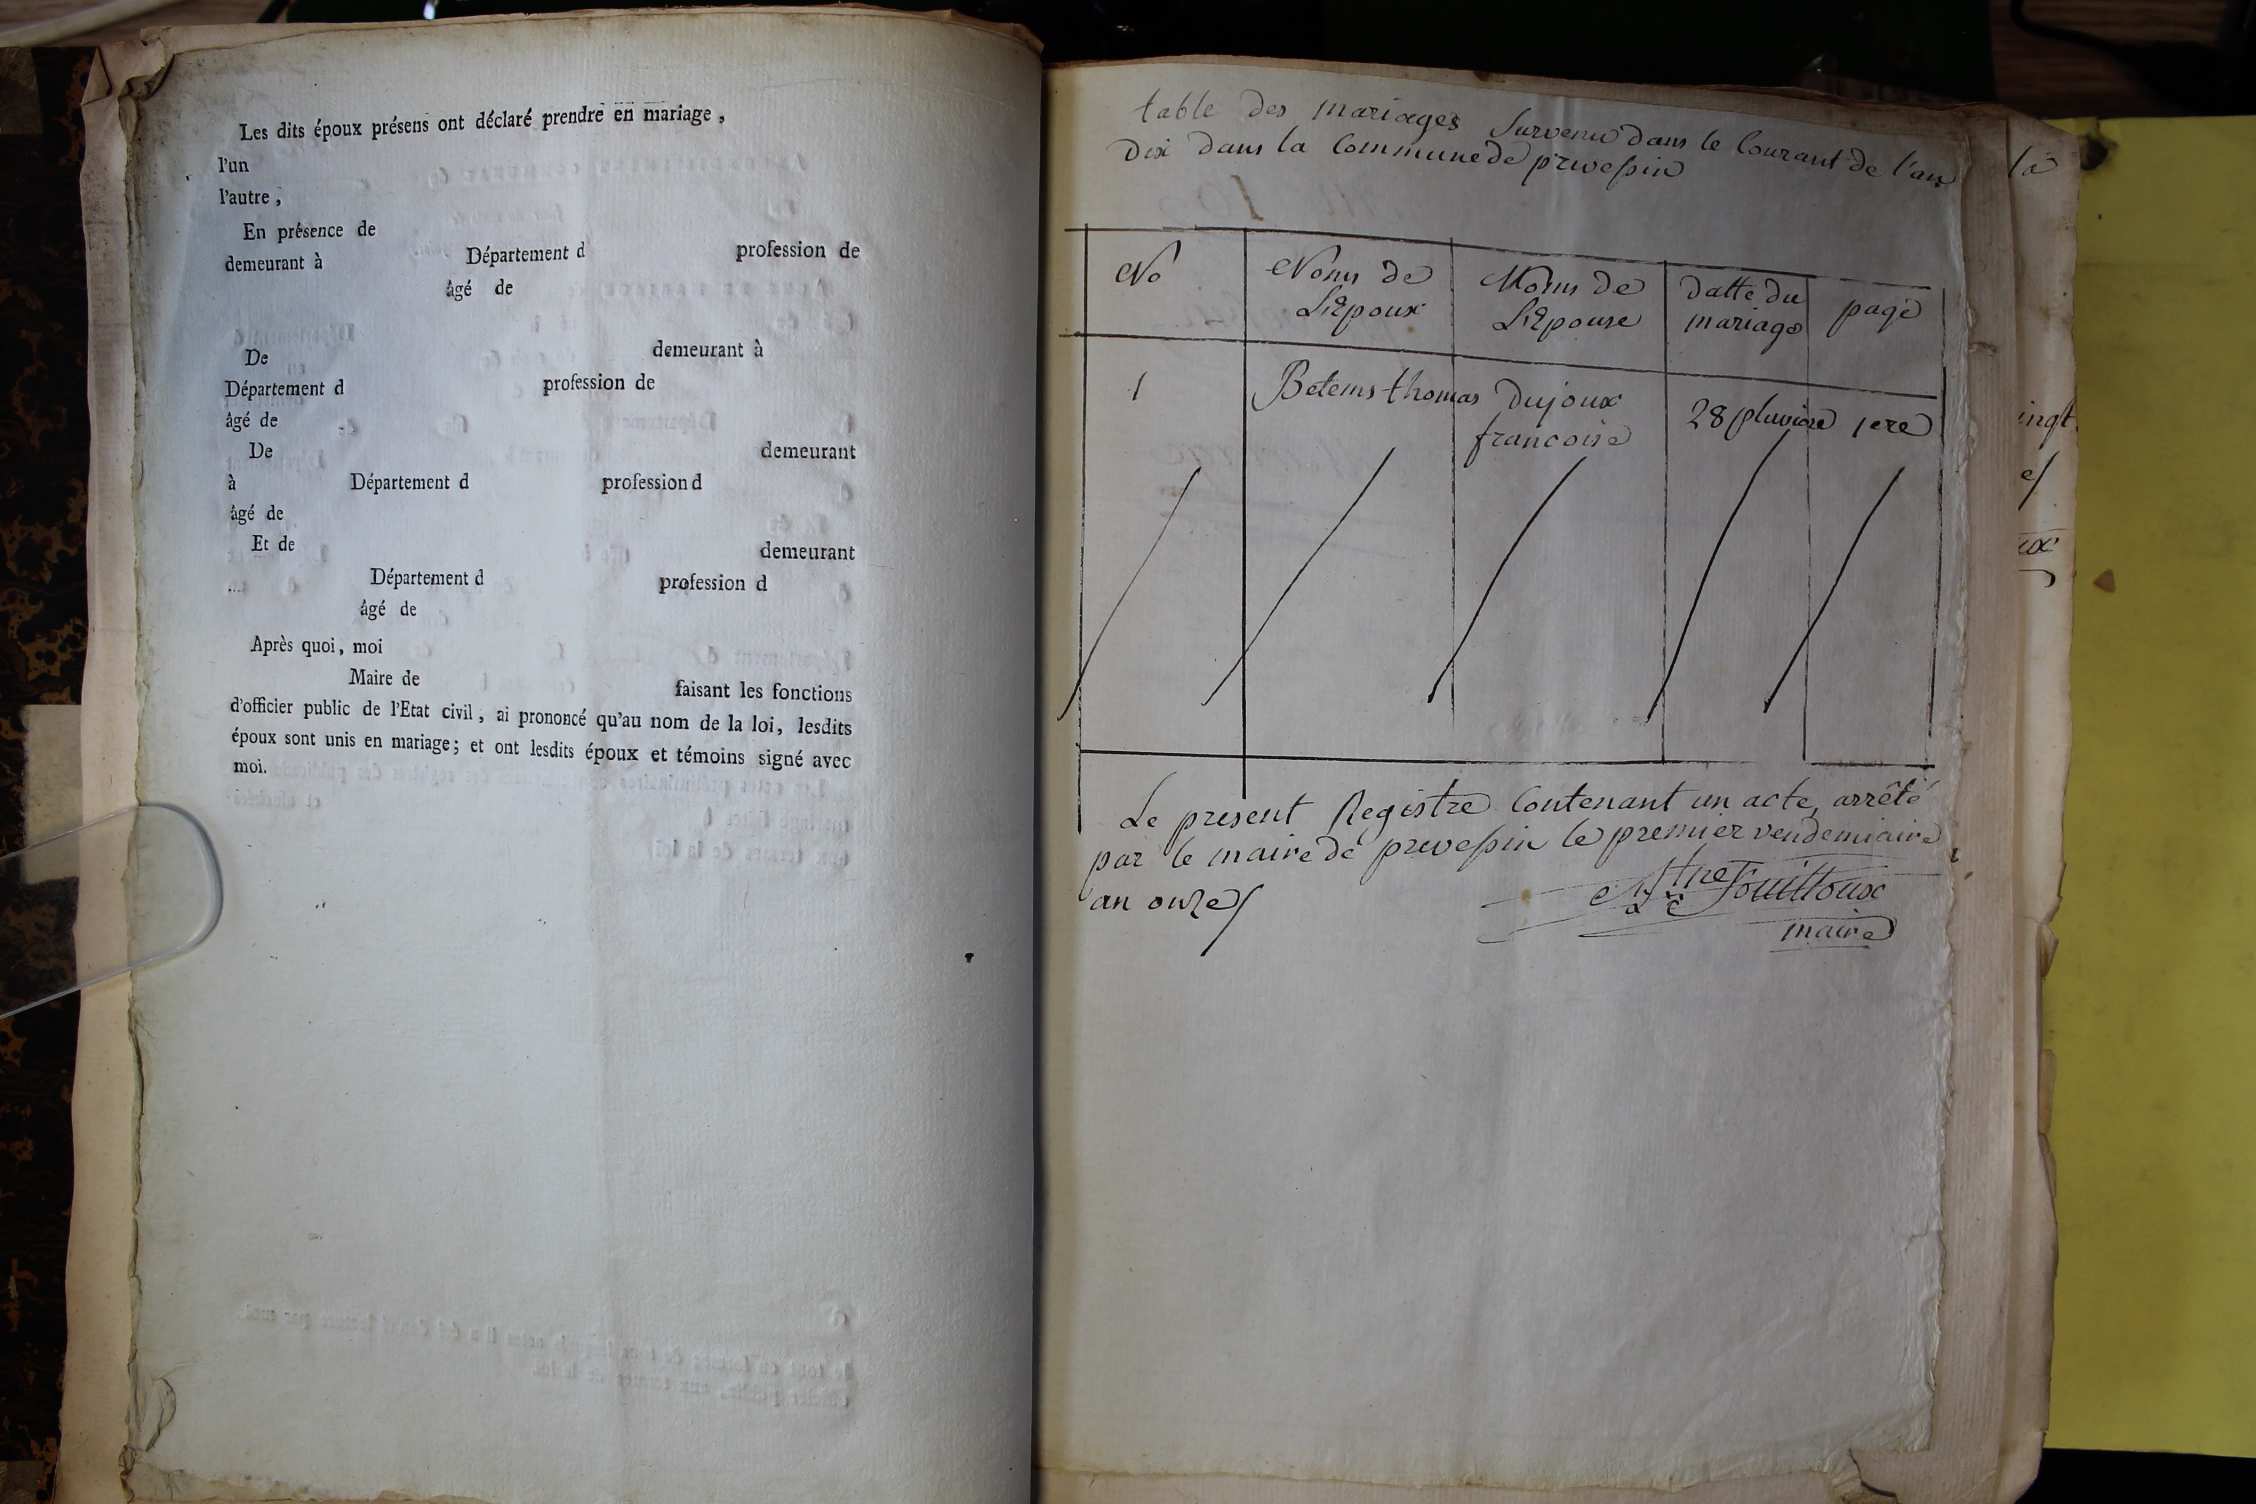 Les dits époux présens ont déclaré prendre en mariage ,
l'un
l'autre ,
En présence de
demeurant à Département d profession de
âgé de
De demeurant à
Département d profession de
âgé de
De demeurant
à Département d profession d
âgé de
Et de demeurant
Département d profession d
âgé de
Après quoi, moi
Maire de faisant les fonctions
d'officier public de l'Etat civil, ai prononcé qu'au nom de la loi, lesdits
époux sont unis en mariage; et ont lesdits époux et témoins signé avec
moi.
table des mariages survenu dans le Courant de l'an
Dix dans la Commune de prevessin
No Noms de L'Epoux Noms de L'Epouse datte du mariage page
1 Betems thomas Dujoux francoise 28 pluviose 1ere
Le present Registre Contenant un acte, arrêté
par le maire de prevessin le premier vendemiaire
an onze/
Fouilloux
maire